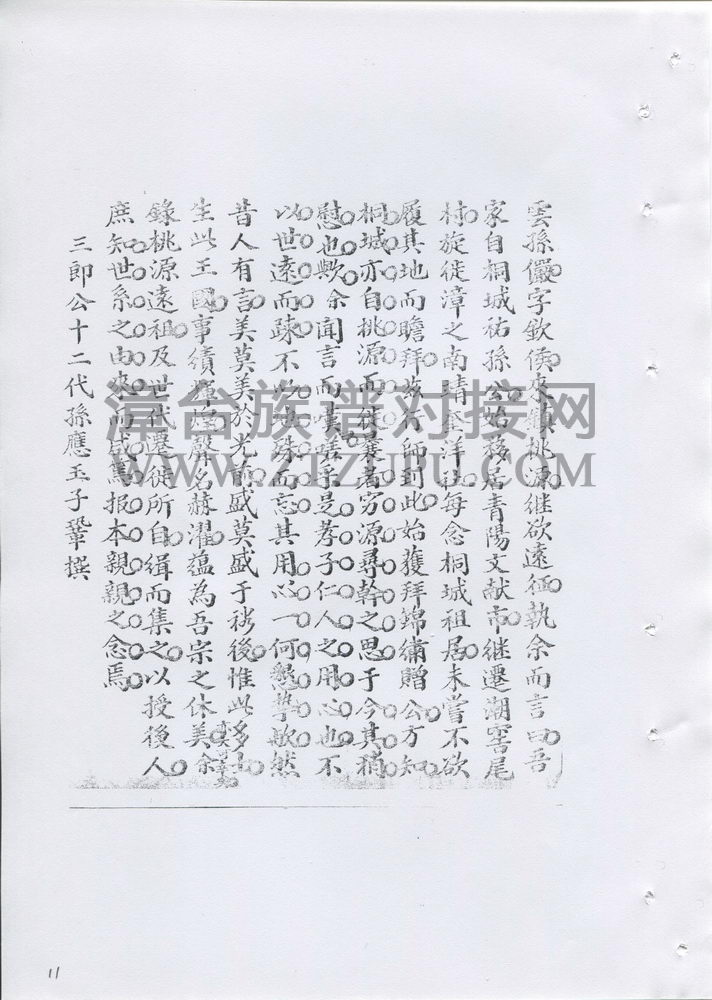 雲孫儼字欽俟來鎮桃源继欲遠征執余而言曰吾
家自桐城祐孫公始移居青陽文献市继遷湖窖尾
村旋徙漳之南靖奎洋社每念桐城祖居未嘗不欲
履其地而瞻拜此始獲拜錦繡贈公方知
桐城亦自桃源而徙窮源尋幹之思于今其稍
慰也歟余聞言而嘆嗟乎是孝子仁人之用心也不
以世遠而踈不以地殊而忘其用心一何懇摯歟然
昔人有言美莫美於光前盛莫盛于裕後惟此多士
生此王國事績輝煌聲名赫濯蕴為吾宗之休美余
錄桃源遠祖及世代遷徙所自缉而集之以授後人
庶知世系之由來而感篤报本親親之念焉
三郎公十二代孫應玉子鞏撰
漳台族谱对接网
WWW.ZTZUPU.COM
11